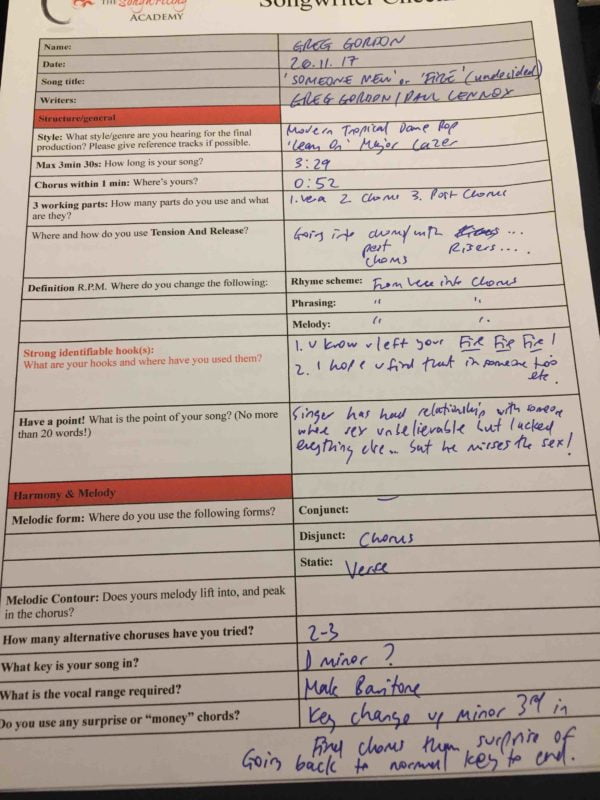 THE SongWriting
ACADEMY
Songwriter Check
Name: GREG GORDON
Date: 26.11.17
Song title: 'SOMEONE NEW' or 'FIRE' (undecided)
Writers: GREG GORDON / PAUL LENNOX
Structure/general
Style: What style/genre are you hearing for the final Modern Tropical Dance Pop
production? Please give reference tracks if possible. 'Lean On' Major Lazer
Max 3min 30s: How long is your song? 3:29
Chorus within 1 min: Where's yours? 0:52
3 working parts: How many parts do you use and what 1. 2. Chorus 3. Post Chorus
are they?
Where and how do you use Tension And Release? Going into chorus with ...
post Risers ....
chorus
Definition R.P.M. Where do you change the following: Rhyme scheme: From verse into Chorus
Phrasing: " "
Melody: " "
Strong identifiable hook(s): 1. U know u left your Fire Fire Fire!
What are your hooks and where have you used them? 2. I hope u find that in someone
etc.
Have a point! What is the point of your song? (No more Singer has had relationship with someone
than 20 words!) where sex unbelievable but lacked
everything else... but he misses the sex!
Harmony & Melody
Melodic form: Where do you use the following forms? Conjunct:
Disjunct: Chorus
Static: Verse
Melodic Contour: Does yours melody lift into, and peak
in the chorus?
How many alternative choruses have you tried? 2-3
What key is your song in? D minor ?
What is the vocal range required? Male Baritone
Do you use any surprise or "money" chords? Key change up minor 3rd in
Final chorus then surprise of
Going back to normal key to end.